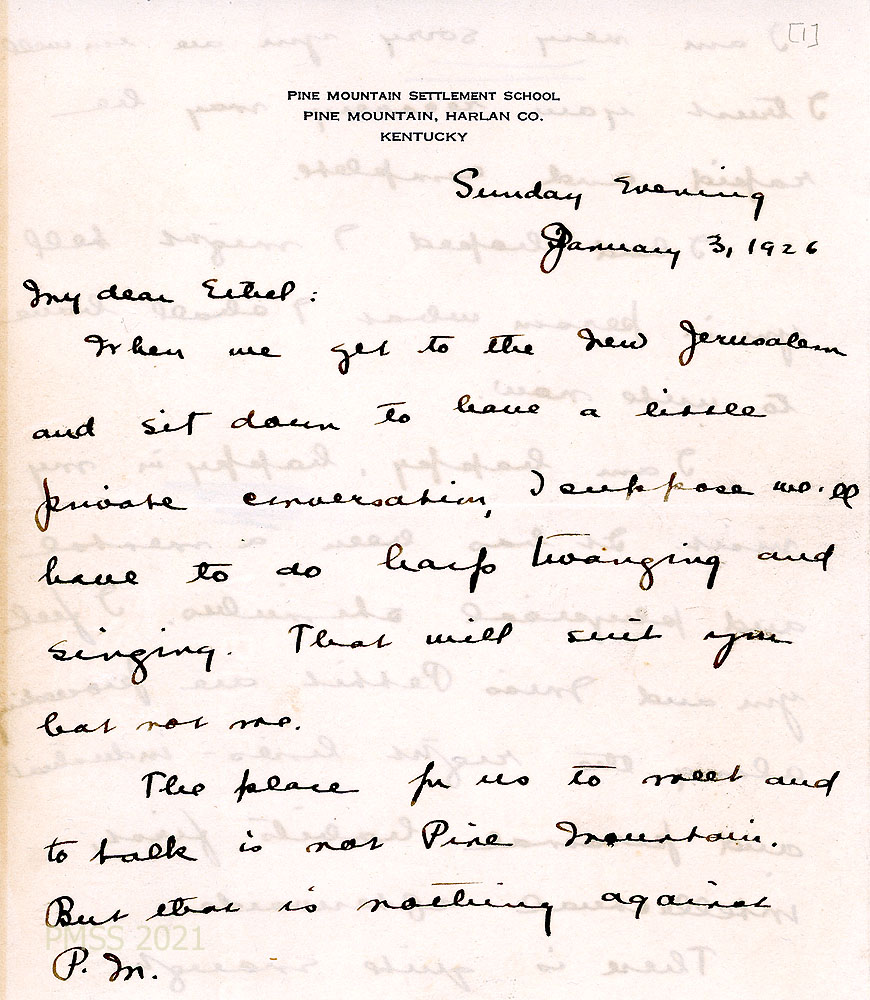 [1]
PINE MOUNTAIN SETTLEMENT SCHOOL
PINE MOUNTAIN, HARLAN CO.
KENTUCKY
Sunday Evening
January 3, 1926
My dear Ethel:
When we get to the New Jerusalem
and sit down to have a little
private conversation, I suppose we'll
have to do harp twanging and
singing. That will suit you
but not me.
The place for us to meet and
to talk is not Pine Mountain.
But that is nothing against
P. M.
PMSS 2021